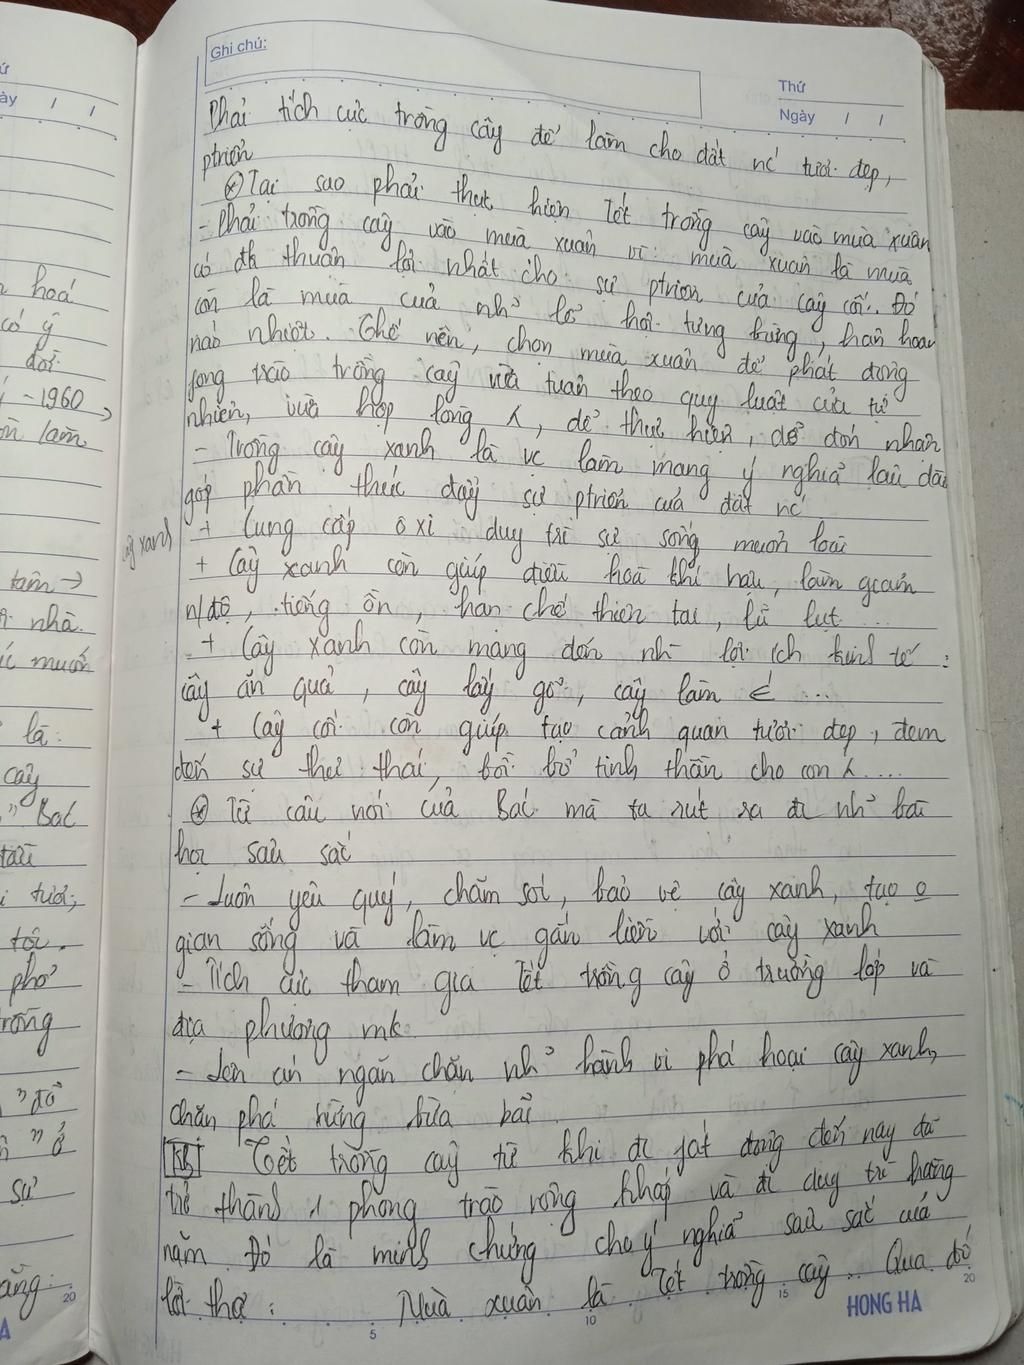 Ghi chú:
Thứ
Ngày / /
Phải tích cực trồng cây để làm cho đất nc' tươi đẹp,
ptriển
⊛ Tại sao phải thực hiện Tết trồng cây vào mùa xuân
- Phải trồng cây vào mùa xuân vì: mùa xuân là mùa
có đk thuận lợi nhất cho sự ptriển của cây cối. Đó
còn là mùa của nh~ lễ hội tưng bừng, hân hoan
náo nhiệt. Thế nên, chọn mùa xuân để phát động
fong trào trồng cây vừa tuân theo quy luật của tự
nhiên, vừa hợp lòng ng, dễ thực hiện, dễ đón nhận
- Trồng cây xanh là vc làm mang ý nghĩa lâu dài
góp phần thúc đẩy sự ptriển của đất nc'
+ Cung cấp ôxi duy trì sự sống muôn loài
+ Cây xanh còn giúp điều hoà khí hậu, làm giảm
n/độ, tiếng ồn, hạn chế thiên tai, lũ lụt ...
+ Cây xanh còn mang đến nh~ lợi ích kinh tế:
cây ăn quả, cây lấy gỗ, cây làm ...
+ Cây cối còn giúp tạo cảnh quan tươi đẹp, đem
đến sự thư thái, bồi bổ tinh thần cho con ng....
⊛ Từ câu nói của Bác mà ta rút ra đc nh~ bài
học sâu sắc
- Luôn yêu quý, chăm sóc, bảo vệ cây xanh, tạo o
gian sống và làm vc gắn liền với cây xanh
- Tích cực tham gia Tết trồng cây ở trường lớp và
địa phương mk
- Lên án ngăn chặn nh~ hành vi phá hoại cây xanh,
chặn phá rừng bừa bãi
KB Tết trồng cây từ khi đc fát động đến nay đã
trở thành 1 phong trào rộng khắp và đc duy trì hàng
năm. Đó là minh chứng cho ý nghĩa sâu sắc của
lời thơ: Mùa xuân là Tết trồng cây.. Qua đó
5 10 15 20
HONG HA
ày / /
hoá
có ý
đời
-1960,
làm
cây xanh
tâm →
nhà.
muốn
là:
cây
" Bác
tươi,
tôi.
phố
trồng
" đổ
" ở
sự
20